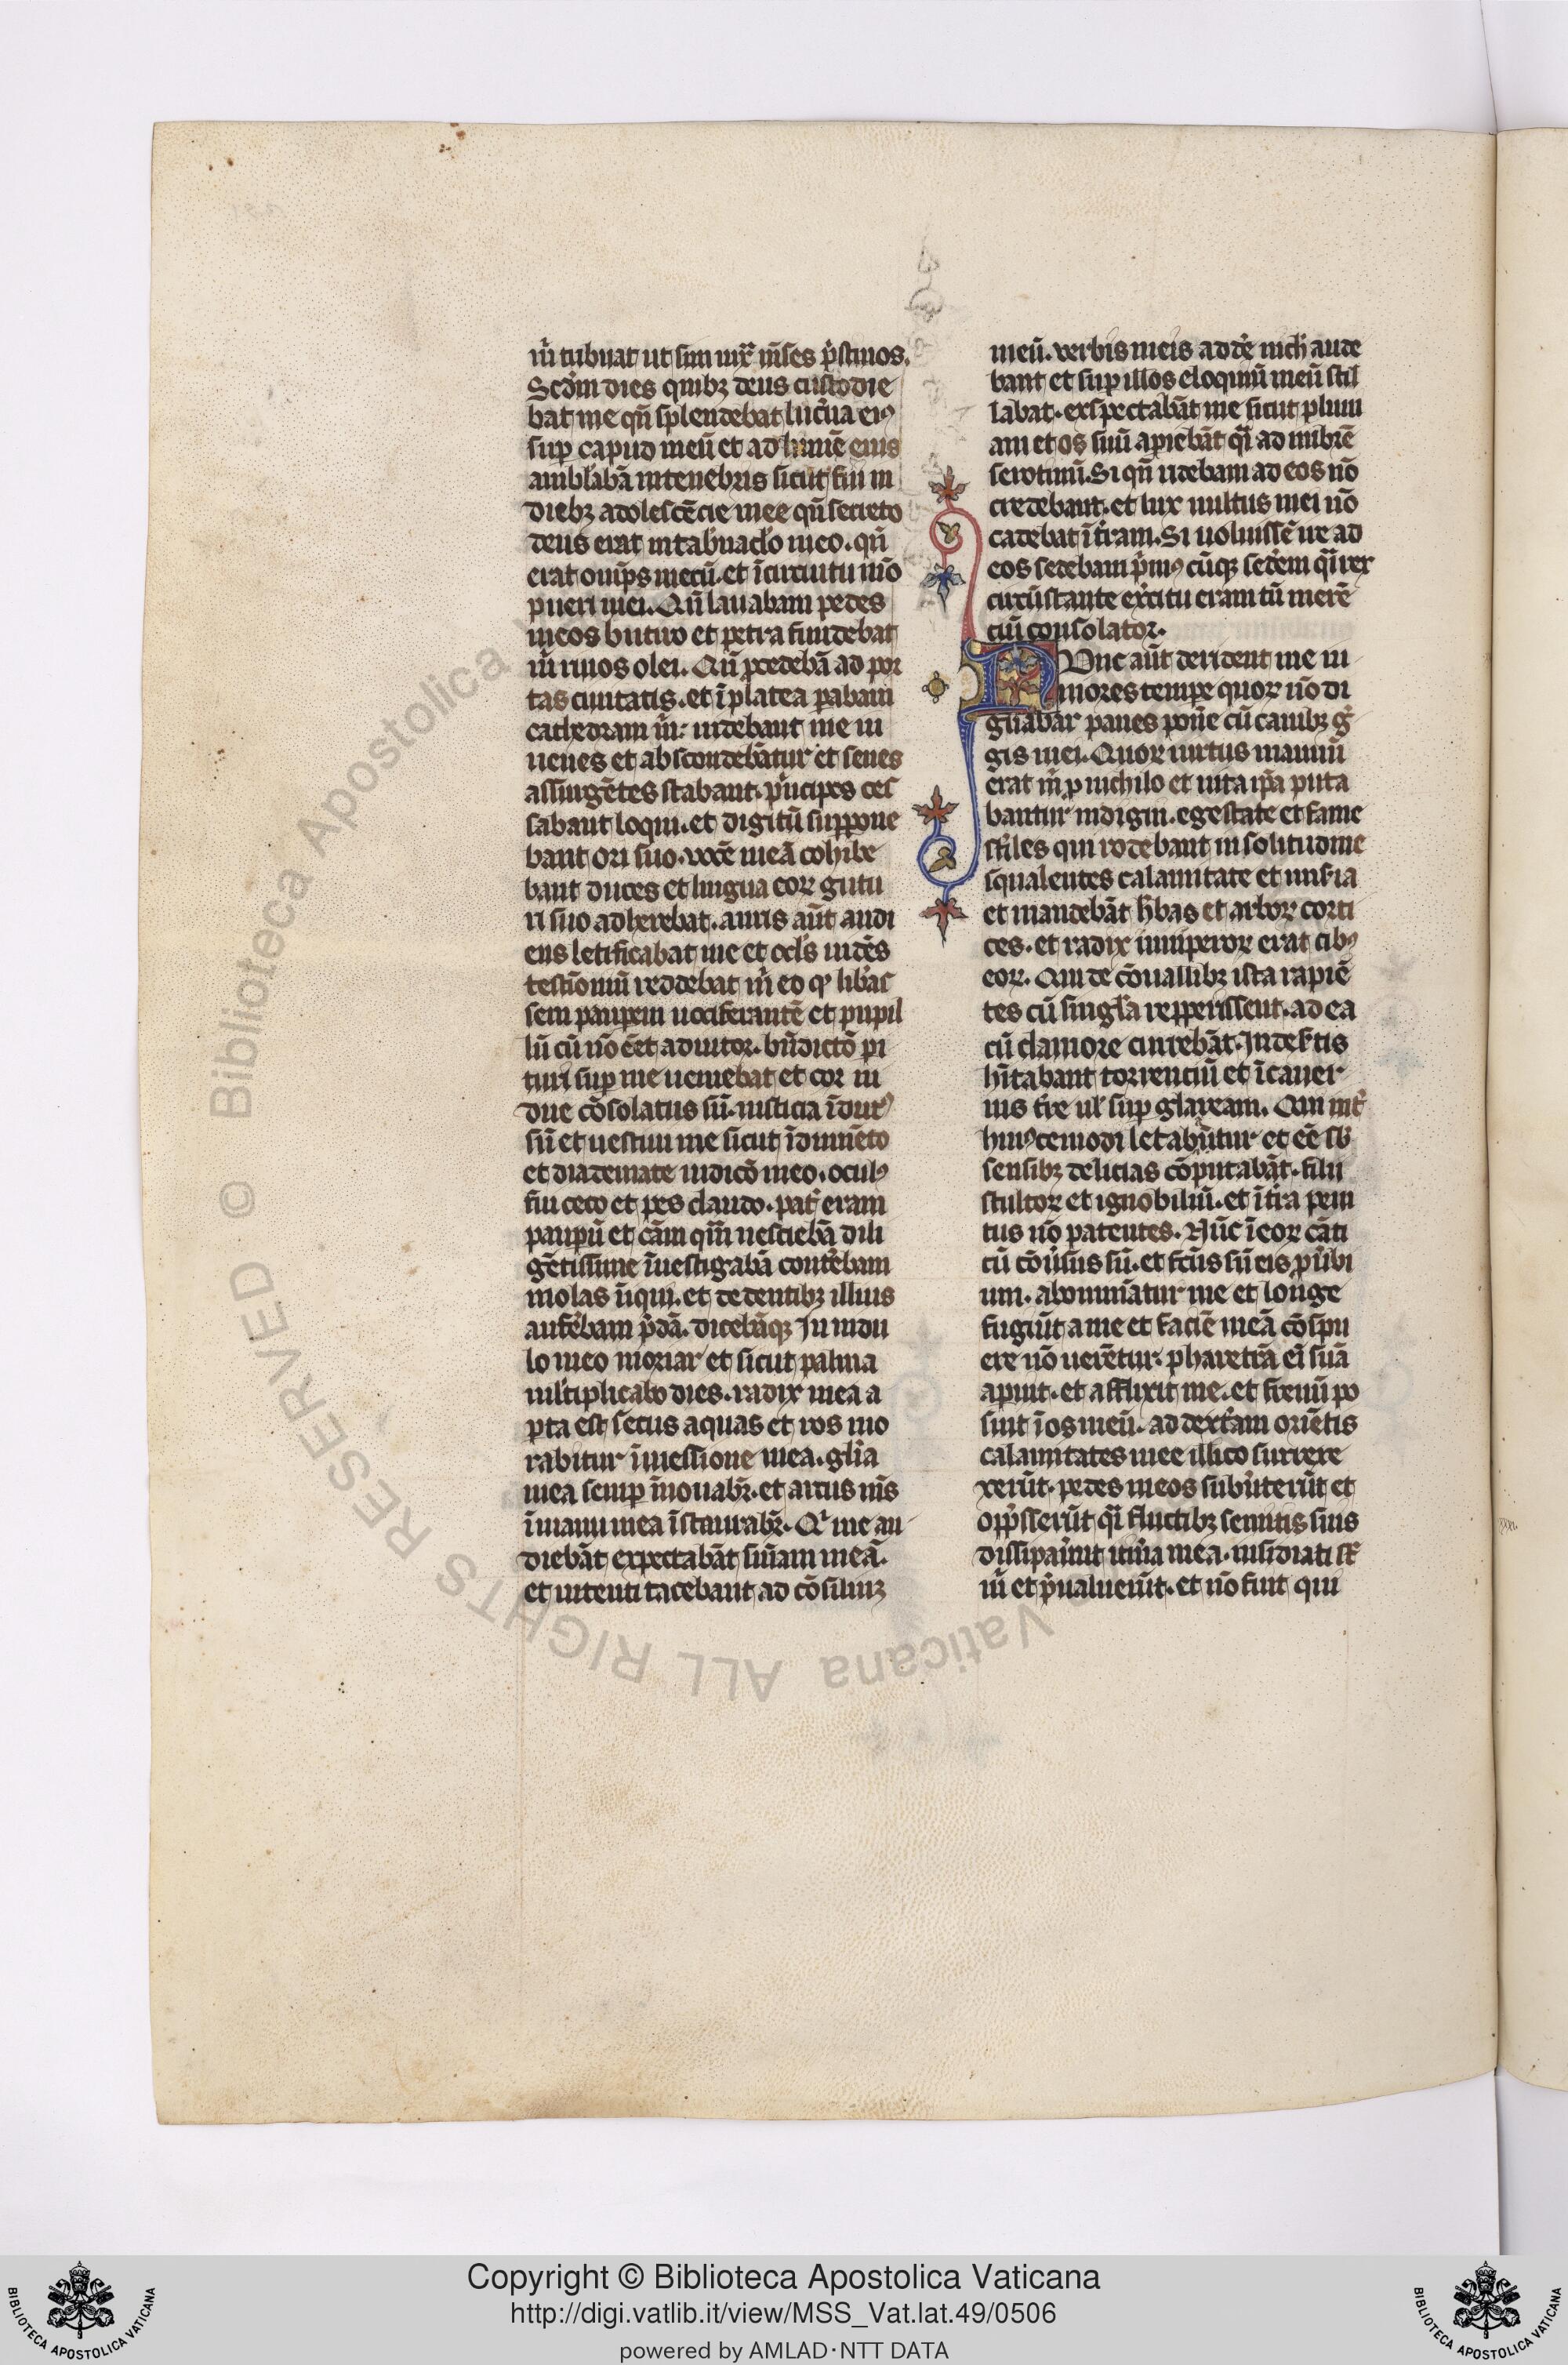 m̄ tribuat ut sim iuxͣ m̄ses p̄stinos.
Scd̄m dies quibꝫ deus custodie
bat me qn̄ splendebat lucͤna eiꝰ
suꝑ capud meū et ad lumē eius
ambl̓abā in tenebris sicut fui in
diebꝫ adolescēcie mee qn̄ secreto
deus erat in tab̓nacl̓o meo. qn̄
erat om̄ps mecū. et ī circuitu m̄o
pueri mei. Qn̄ lauabam pedes
meos butiro et petra fundebat
m̄ riuos olei. Qn̄ ꝓcedebā ad por
tas ciuitatis. et ī platea ꝑabam
cathedram m̄. uidebant me iu
uenes et abscondebātur et senes
assurgētes stabant. pͥncipes ces
sabant loqui. et digitū suppone
bant ori suo. uocē meā cohibe
bant duces et lingua eoꝝ gutu
ri suo adherebat. auris aūt audi
ens letificabat me et ocl̓s uidēs
testīoniū reddebat m̄ eo ꝙ lib̓as
sem pauꝑem uociferantē et pupil
lū cū nō eēt adiutor. bn̄dictō ꝑi
turi suꝑ me ueniebat et cor ui
due cōsolatus sū. iusticia īdutꝰ
sū et uestiui me sicut īdumēto
et diademate iudicō meo. oculꝰ
fui ceco et pes claudo. pat̓ eram
pauꝑū et cām qͣm nesciebā dili
gētissime īuestigabā conterebam
molas īiqui. et de dentibꝫ illius
aufērebam p̄dā. dicebāqꝫ In nidu
lo meo moriar et sicut palma
ml̓tiplicabo dies. radix mea a
ꝑta est secus aquas et ros mo
rabitur ī messione mea. gl̄ia
mea semꝑ īnouabr̄. et arcus m̄s
ī manu mea īstaurabr̄. Qͥ me au
diebāt expectabāt sn̄iam meā.
et intenti tacebant ad cōsiliuꝫ
meū. uerbis meis addere nich̄ aude
bant et suꝑ illos eloquiū meū stil
labat. exspectabāt me sicut pluui
am et os suū aꝑiebāt qͣi ad imbrē
serotinū. Si qn̄ ridebam ad eos nō
credebant. et lux uultus mei nō
cadebat ī t̓ram. Si uoluissē ire ad
eos sedebam pͥmꝰ cūqꝫ sederem qͣi rex
circūstante ex̓citu eram tn̄ merē
ciū consolator.
Nunc aūt derident me iu
niores tempe quoꝝ nō di
gnabar panes pon̄e cū canibꝫ gͤ
gis mei. Quoꝝ uirtus manuū
erat m̄ ꝓ nichilo et uita ip̄a puta
bantur indigni. egestate et fame
st̓iles qui rodebant in solitudine
squalentes calamitate et mis̓ia
et mandebāt h̓bas et arboꝝ corti
ces. et radix iuniꝑoꝝ erat cibꝰ
eoꝝ. Qui de cōuallibꝫ ista rapiē
tes cū singl̓a repꝑissent. ad ea
cū clamore currebāt. In des̓tis
h̄itabant torrenciū et ī cauer
nis t̓re ul̓ suꝑ glaream. Qui int̓
huiꝰcemodi letab̄ntur et eē sb̓
sensibꝫ delicias cōputabāt. filii
stultoꝝ et ignobiliū. et ī t̓ra peni
tus nō parentes. Nūc ī eoꝝ cāti
cū cōuͤsus sū. et fc̄us sū eis ꝓuͤbi
um. abominātur me et longe
fugiūt a me et faciē meā cōspu
ere nō uerētur. pharetrā eī suā
aꝑuit. et afflixit me. et frenū po
suit ī os meū. ad dext̓am oriētis
calamitates mee illico surrexe
xerūt. pedes meos subu̓terūt et
opp̄sserūt qͣi fluctibꝫ semitis suis
dissipauͤrūt itīn̓a mea. insidiati sꝷ
m̄ et p̄ualuerūt. et nō fuit qui
Copyright © Biblioteca Apostolica Vaticana
http://digi.vatlib.it/view/MSS_Vat.lat.49/0506
powered by AMLAD·NTT DATA
BIBLIOTECA APOSTOLICA VATICANA
BIBLIOTECA APOSTOLICA VATICANA
© Biblioteca Apostolica Vaticana ALL RIGHTS RESERVED